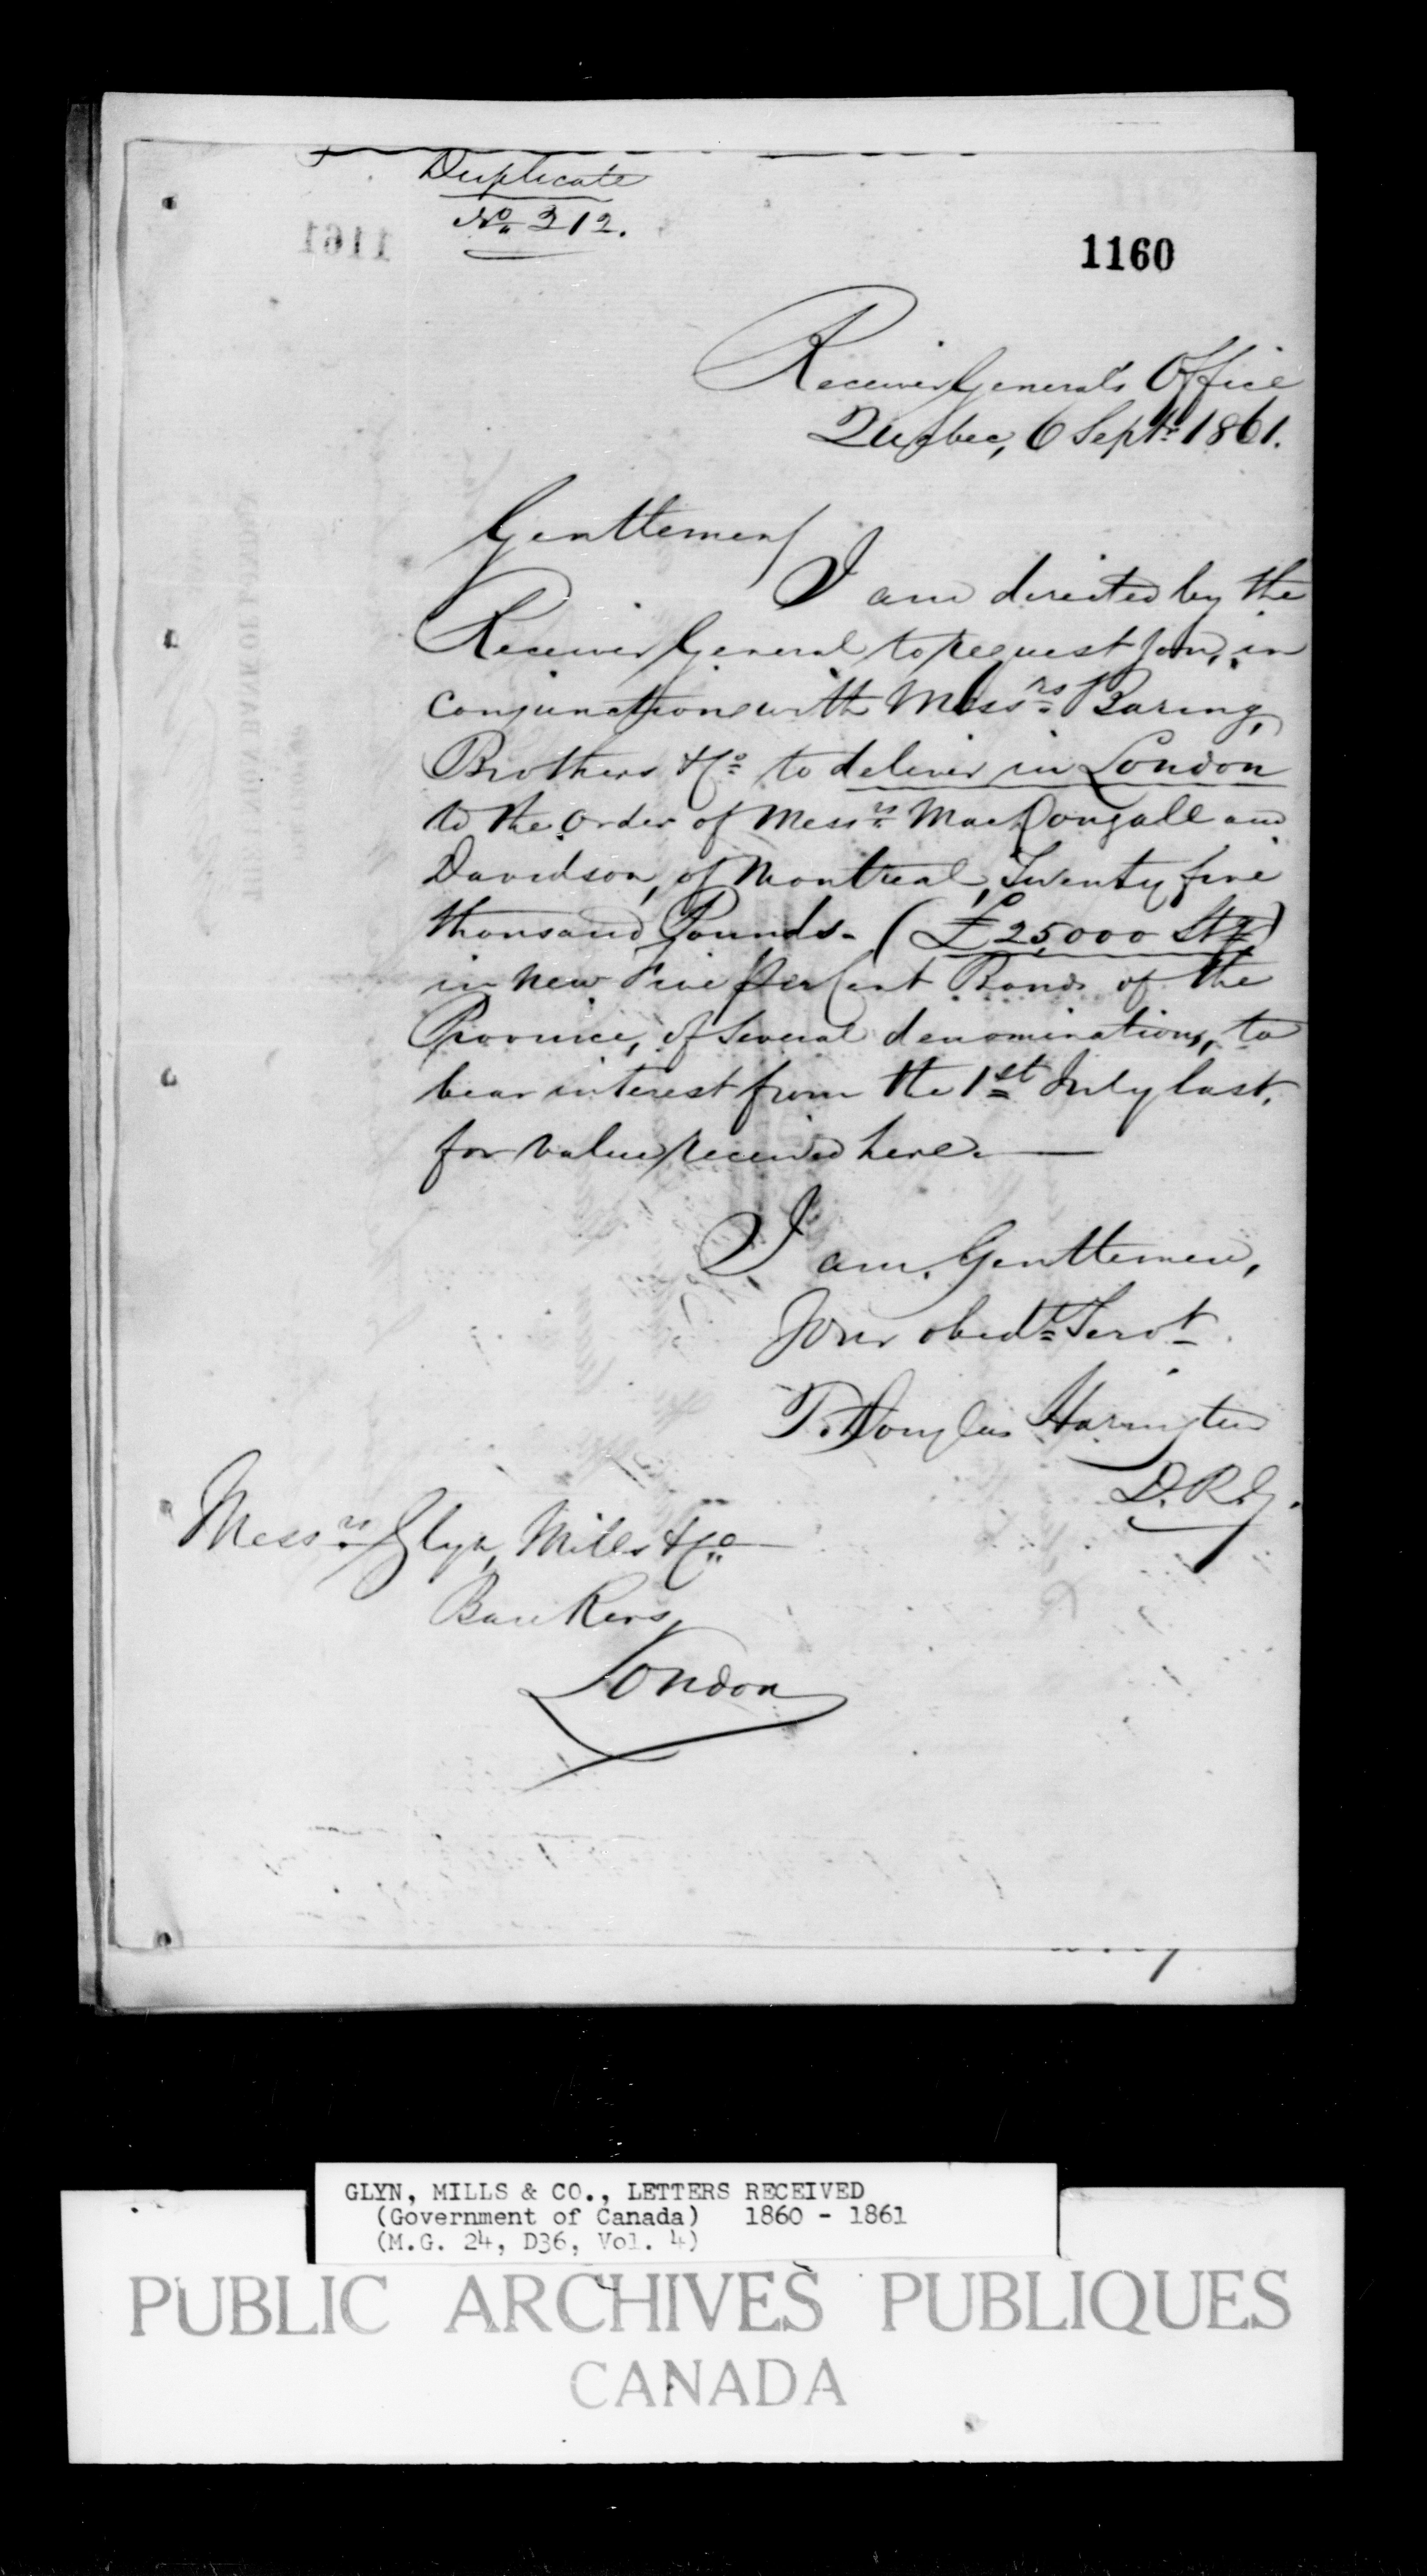 Duplicate
No. 312.
1161
1160
Receiver General's Office
Quebec, 6 Septr. 1861.
Gentlemen
I am directed by the
Receiver General to request you, in
conjunction with Messrs. Baring,
Brothers & Co. to deliver in London
to the order of Messrs. MacDougall and
Davidson, of Montreal, Twenty five
thousand Pounds - (£25,000 Stg)
in new Five per Cent Bonds of the
Province, of several denominations, to
bear interest from the 1st July last,
for value received here.
I am, Gentlemen,
Your obedt. Servt.
T. Douglas Harington
D.R.G.
Messrs. Glyn, Mills & Co.
Bankers,
London
GLYN, MILLS & CO., LETTERS RECEIVED
(Government of Canada) 1860 - 1861
(M.G. 24, D36, Vol. 4)
PUBLIC ARCHIVES PUBLIQUES
CANADA